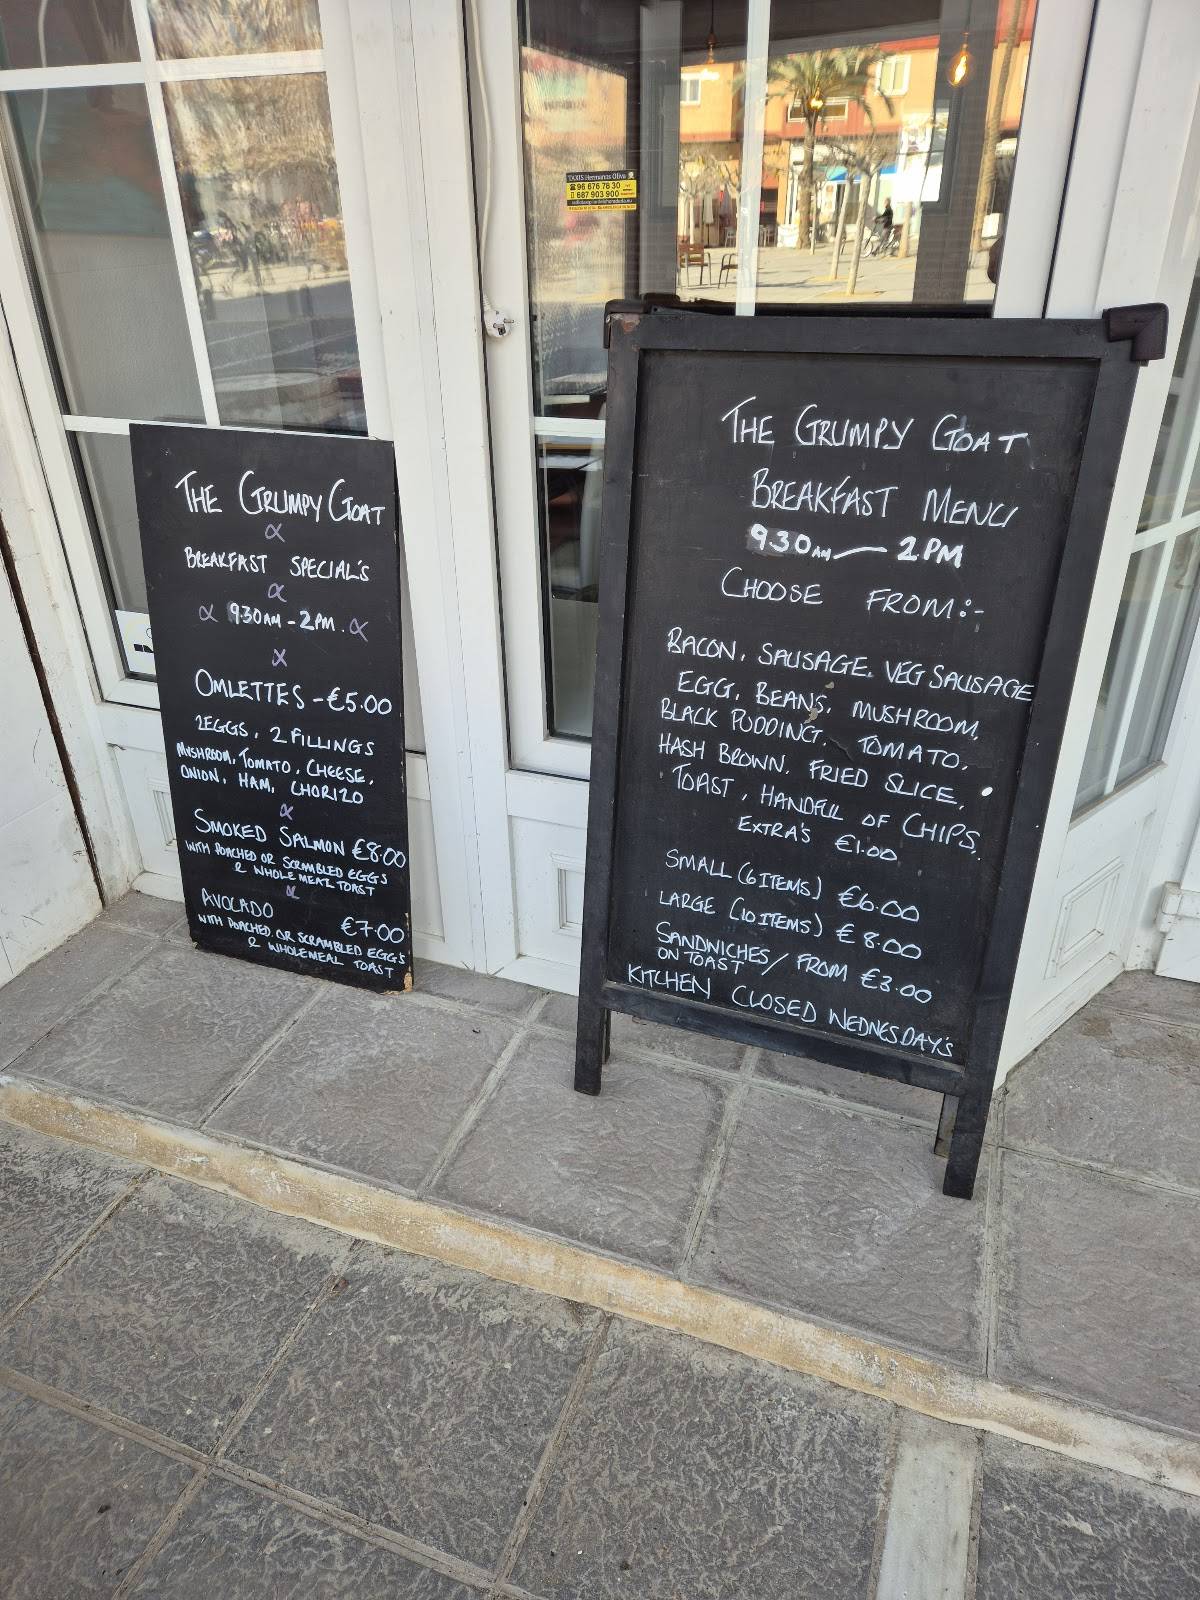 THE GRUMPY GOAT
BREAKFAST SPECIAL'S
9.30AM - 2PM.
OMLETTES - €5.00
2 EGGS, 2 FILLINGS
MUSHROOM, TOMATO, CHEESE,
ONION, HAM, CHORIZO
SMOKED SALMON €8.00
WITH POACHED OR SCRAMBLED EGGS
& WHOLEMEAL TOAST
AVOCADO €7.00
WITH POACHED OR SCRAMBLED EGGS
& WHOLEMEAL TOAST
TAXIS Hermanos Oliva
96 676 78 30
687 903 900
THE GRUMPY GOAT
BREAKFAST MENU
9.30AM — 2PM
CHOOSE FROM:-
BACON, SAUSAGE, VEG SAUSAGE
EGG, BEANS, MUSHROOM,
BLACK PUDDING, TOMATO,
HASH BROWN, FRIED SLICE,
TOAST, HANDFUL OF CHIPS.
EXTRA'S €1.00
SMALL (6 ITEMS) €6.00
LARGE (10 ITEMS) €8.00
SANDWICHES/ FROM €3.00
ON TOAST
KITCHEN CLOSED WEDNESDAY'S